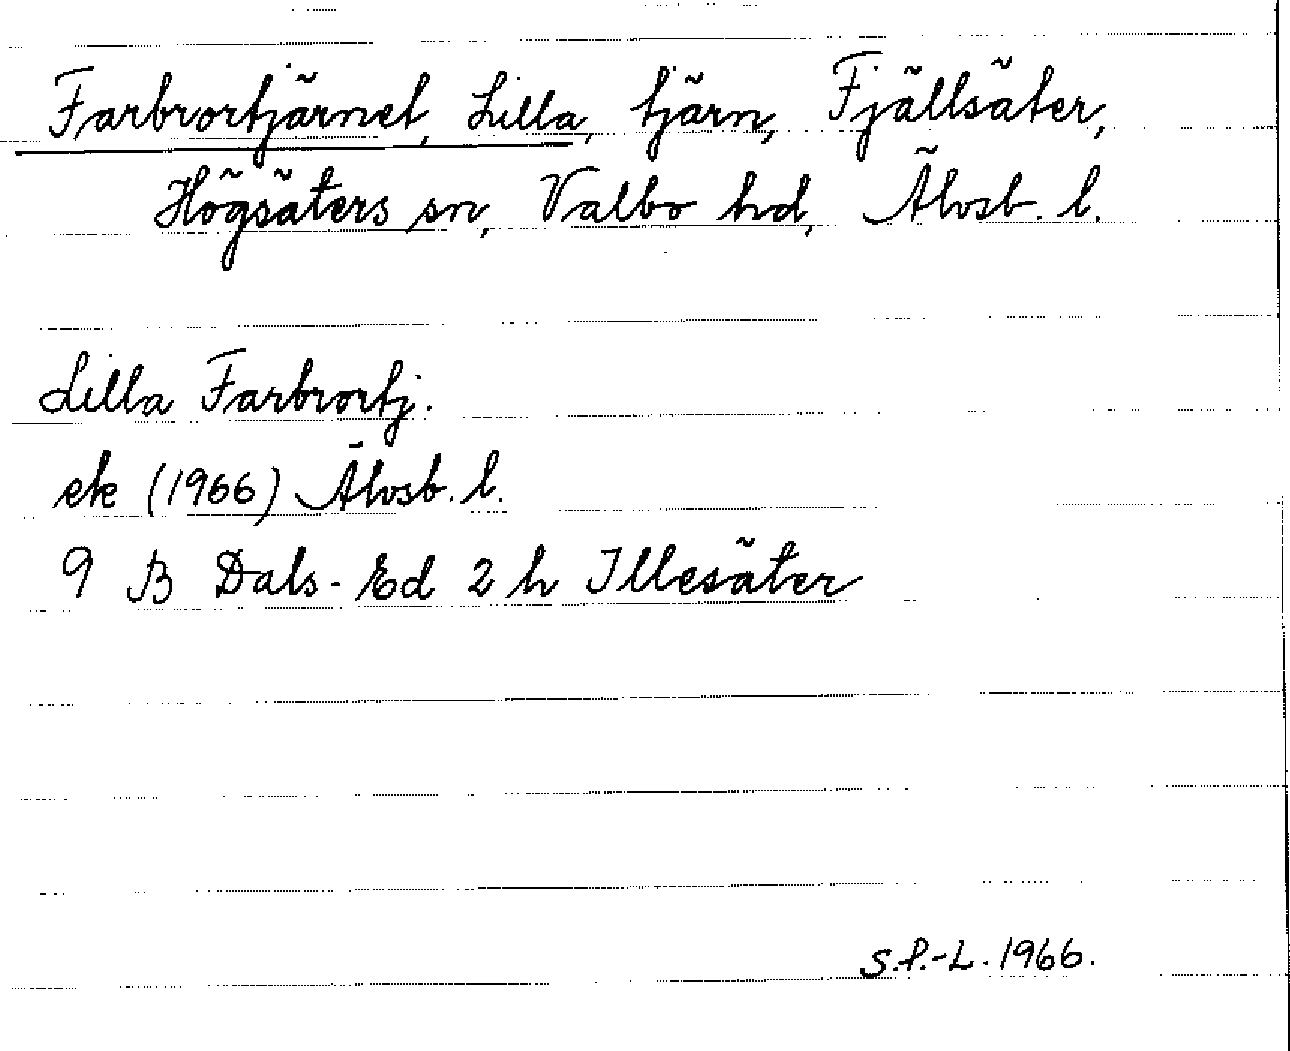 Farbrortjärnet, Lilla, tjärn, Fjällsäter,
Högsäters sn, Valbo hd, Älvsb. l.
Lilla Farbrortj.
ek (1966) Älvsb. l.
9 B Dals-Ed 2 h Illesäter
S.P.-L. 1966.